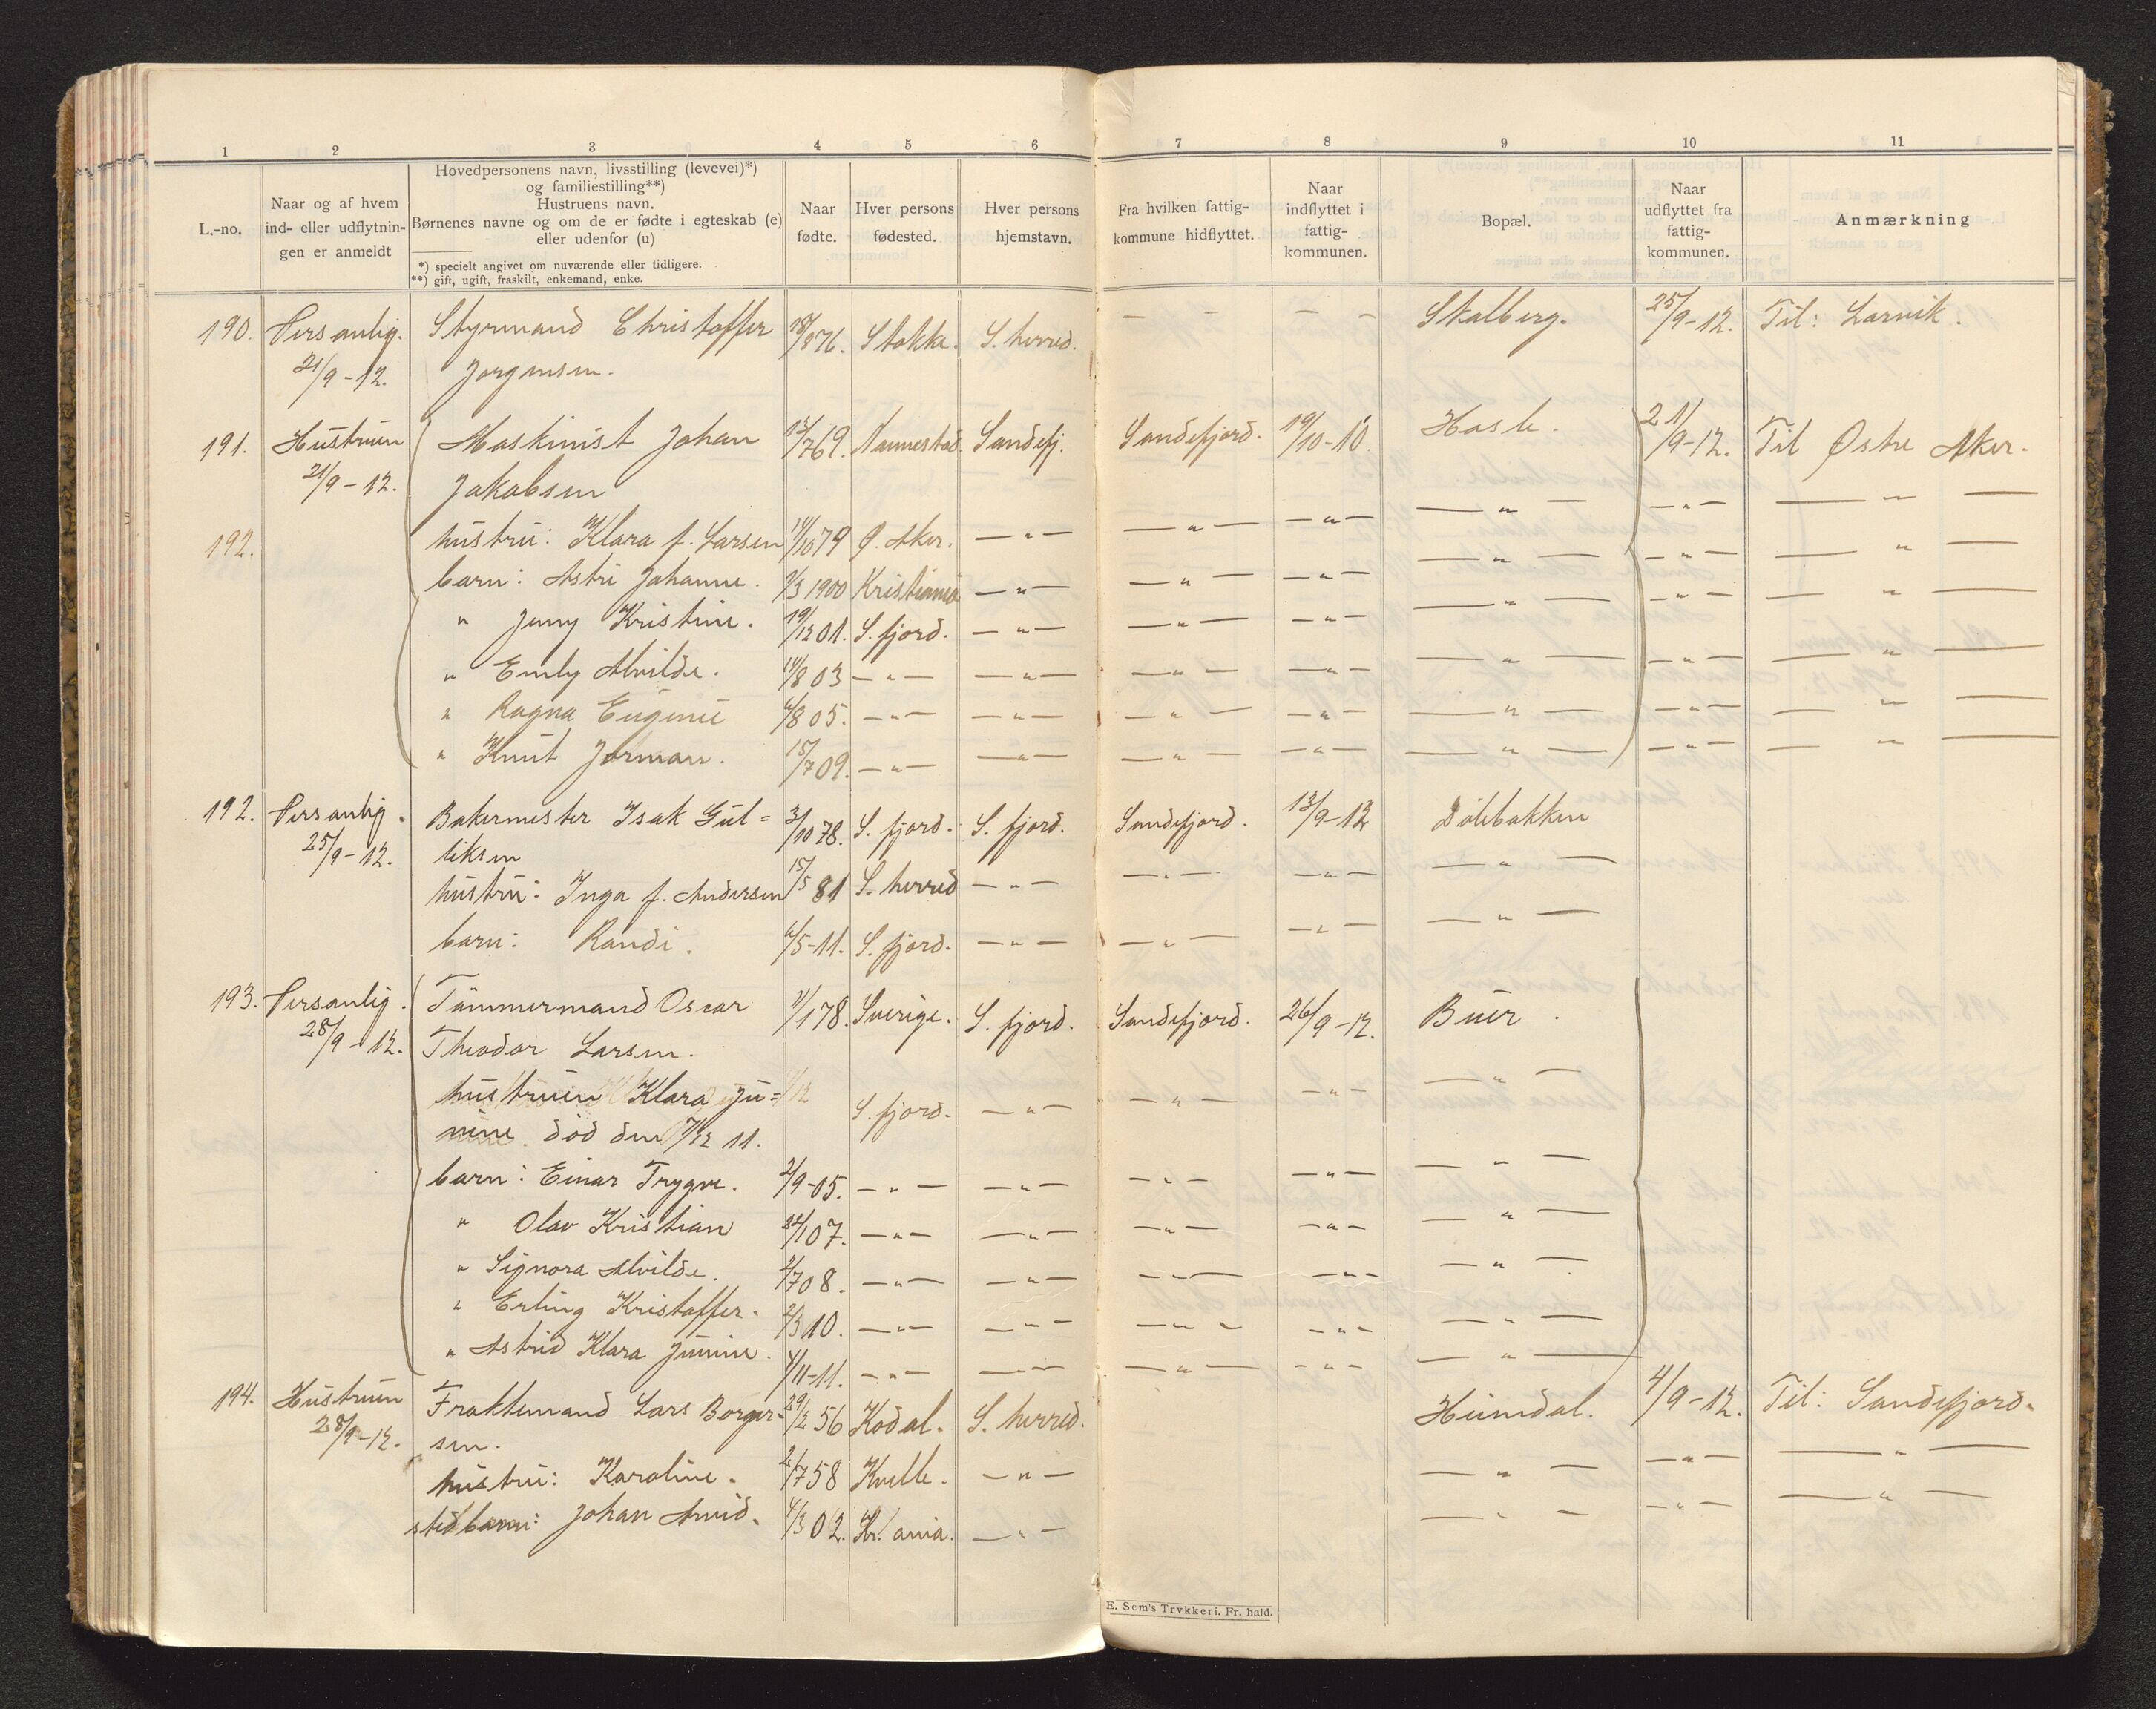 1 2 3 4 5 6 7 8 9 10 11
L.-no.
Naar og af hvem
ind- eller udflytnin-
gen er anmeldt
Hovedpersonens navn, livsstilling (levevei)*)
og familiestilling**)
Hustruens navn.
Børnenes navne og om de er fødte i egteskab (e)
eller udenfor (u)
*) specielt angivet om nuværende eller tidligere.
**) gift, ugift, fraskilt, enkemand, enke.
Naar
fødte.
Hver persons
fødested.
Hver persons
hjemstavn.
Fra hvilken fattig-
kommune hidflyttet.
Naar
indflyttet i
fattig-
kommunen.
Bopæl.
Naar
udflyttet fra
fattig-
kommunen.
Anmærkning
190. Personlig. Styrmand Christoffer 18/8 76. Stokke. S. herred. — — — — Skalberg. 25/9-12. Til: Larvik.
21/9-12. Jørgensen.
191. Hustruen Maskinist Johan 13/7 69. Nannestad. Sandefj. Sandefjord. 19/10-10. Hasle. 21/9-12. Til Østre Aker.
21/9-12. Jakobsen
192. hustru: Klara f. Larsen 14/10 79 Ø. Aker. —"— —"— —"— —"— —"— —"—
barn: Astri Johanne. 1/3 1900 Kristiania —"— —"— —"— —"— —"— —"—
" Jenny Kristine. 19/12 01. S. fjord. —"— —"— —"— —"— —"— —"—
" Emly Alvilde. 14/8 03 —"— —"— —"— —"— —"— —"— —"—
" Ragna Eugenie 4/8 05. —"— —"— —"— —"— —"— —"— —"—
" Knut Jørman. 15/7 09. —"— —"— —"— —"— —"— —"— —"—
192. Personlig. Bakermester Isak Gul= 3/10 78. S. fjord. S. fjord. Sandefjord. 13/9-12 Dølebakken
25/9-12. liksen
hustru: Inga f. Andersen 15/5 81 S. herred —"— —"— —"— —"—
barn: Randi. 4/5-11. S. fjord. —"— —"— —"— —"—
193. Personlig. Tømmermand Oscar 11/1 78. Sverige. S. fjord. Sandefjord. 26/9-12. Buer.
28/9-12. Theodor Larsen.
hustruen Klara Ju= S. fjord. —"— —"— —"— —"—
nine. død den 7/12 11.
barn: Einar Trygve. 2/9-05. —"— —"— —"— —"— —"—
" Olav Kristian 22/1 07. —"— —"— —"— —"— —"—
" Signora Alvilde. 2/7 08. —"— —"— —"— —"— —"—
" Erling Kristoffer. 2/3 10. —"— —"— —"— —"— —"—
" Astrid Klara Junine. 4/11-11. —"— —"— —"— —"— —"—
194. Hustruen Fraktemand Lars Borger- 29/2 56 Kodal. S. herred. Heimdal. 4/9-12. Til: Sandefjord.
28/9-12. sen.
hustru: Karoline. 2/7 58 Kvelle. —"— —"— —"— —"—
stedbarn: Johan Arvid. 4/3 02. Kr.ania. —"— —"— —"— —"—
E. Sem's Trykkeri, Fr. hald.